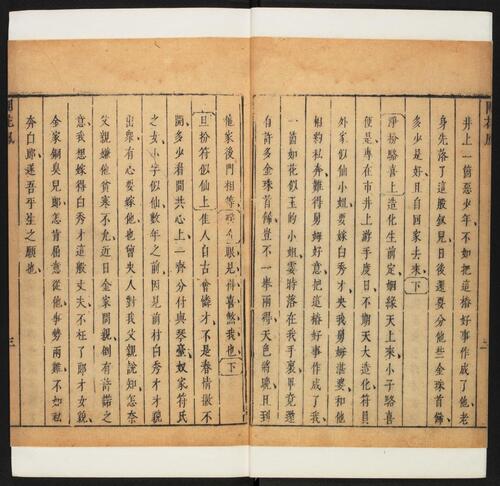 井上一箇惡少年不如把這樁好事作成了他老
身先落了這股釵兒日後還要分他些金珠首飾
多少是好且自回家去來下
淨扮駱喜上造化生前定姻緣天上來小子駱喜
便是專在市井上游手度日不期天大造化符員
外家似仙小姐要嫁白秀才央我舅姆湛婆和他
相約私奔難得舅姆好意把這樁好事作成了我
一箇如花似玉的小姐霎時落在我手裏畢竟還
有許多金珠首飾豈不一舉兩得天色將晚且到
他家後門相等
眼見得喜煞我也下
旦扮符似仙上佳人自古會憐才不是春情撇不
開多少看間共心上一齊分付與琴臺奴家符氏
之女小字似仙數年之前因見前村白秀才才貌
出眾有心要嫁他也曾央人對我父親說知怎奈
父親嫌他貧寒不允近日金家問親倒有許諾之
意我想嫁得白秀才這般丈夫不枉了郎才女貌
金家銅臭兒郎怎肯屈意從他事勢兩難不如私
奔白郎遂吾平生之願也
三